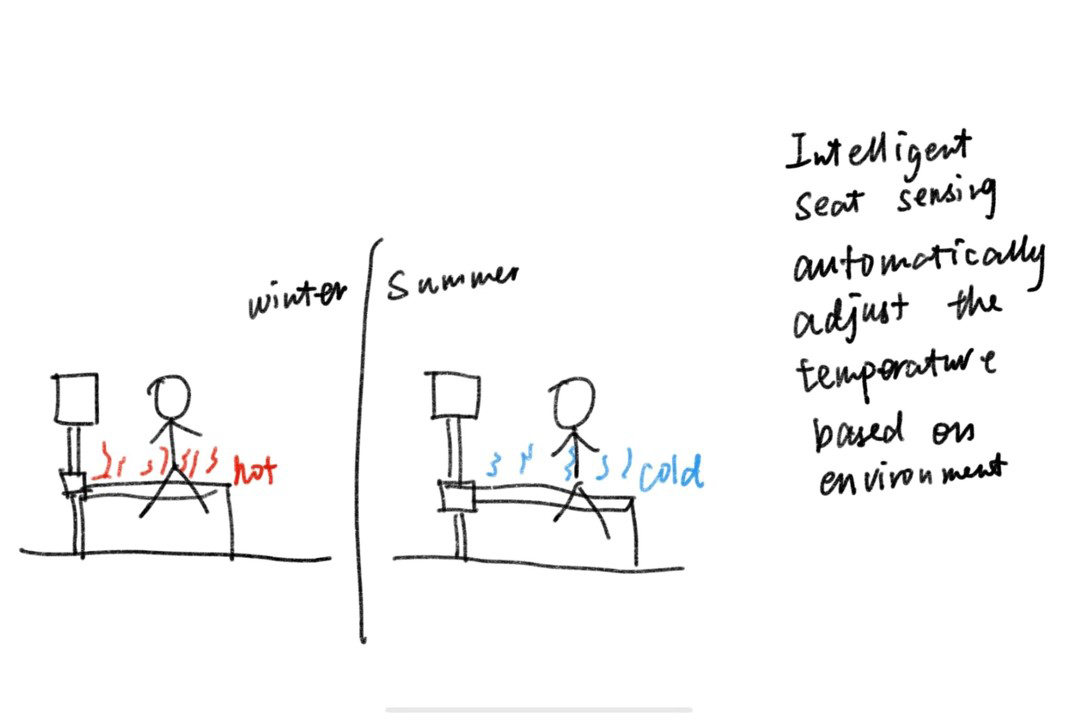 winter
Summer
hot
cold
Intelligent
seat sensing
automatically
adjust the
temperature
based on
environment